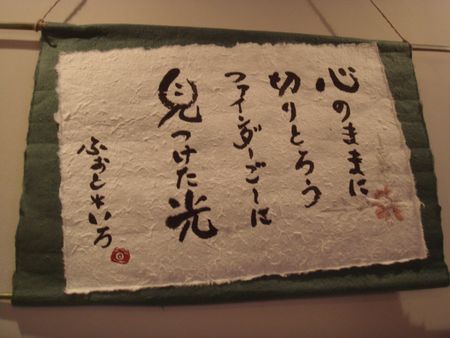 心のままに
切りとろう
ファインダーごしに
見つけた光
ふぉと*いろ